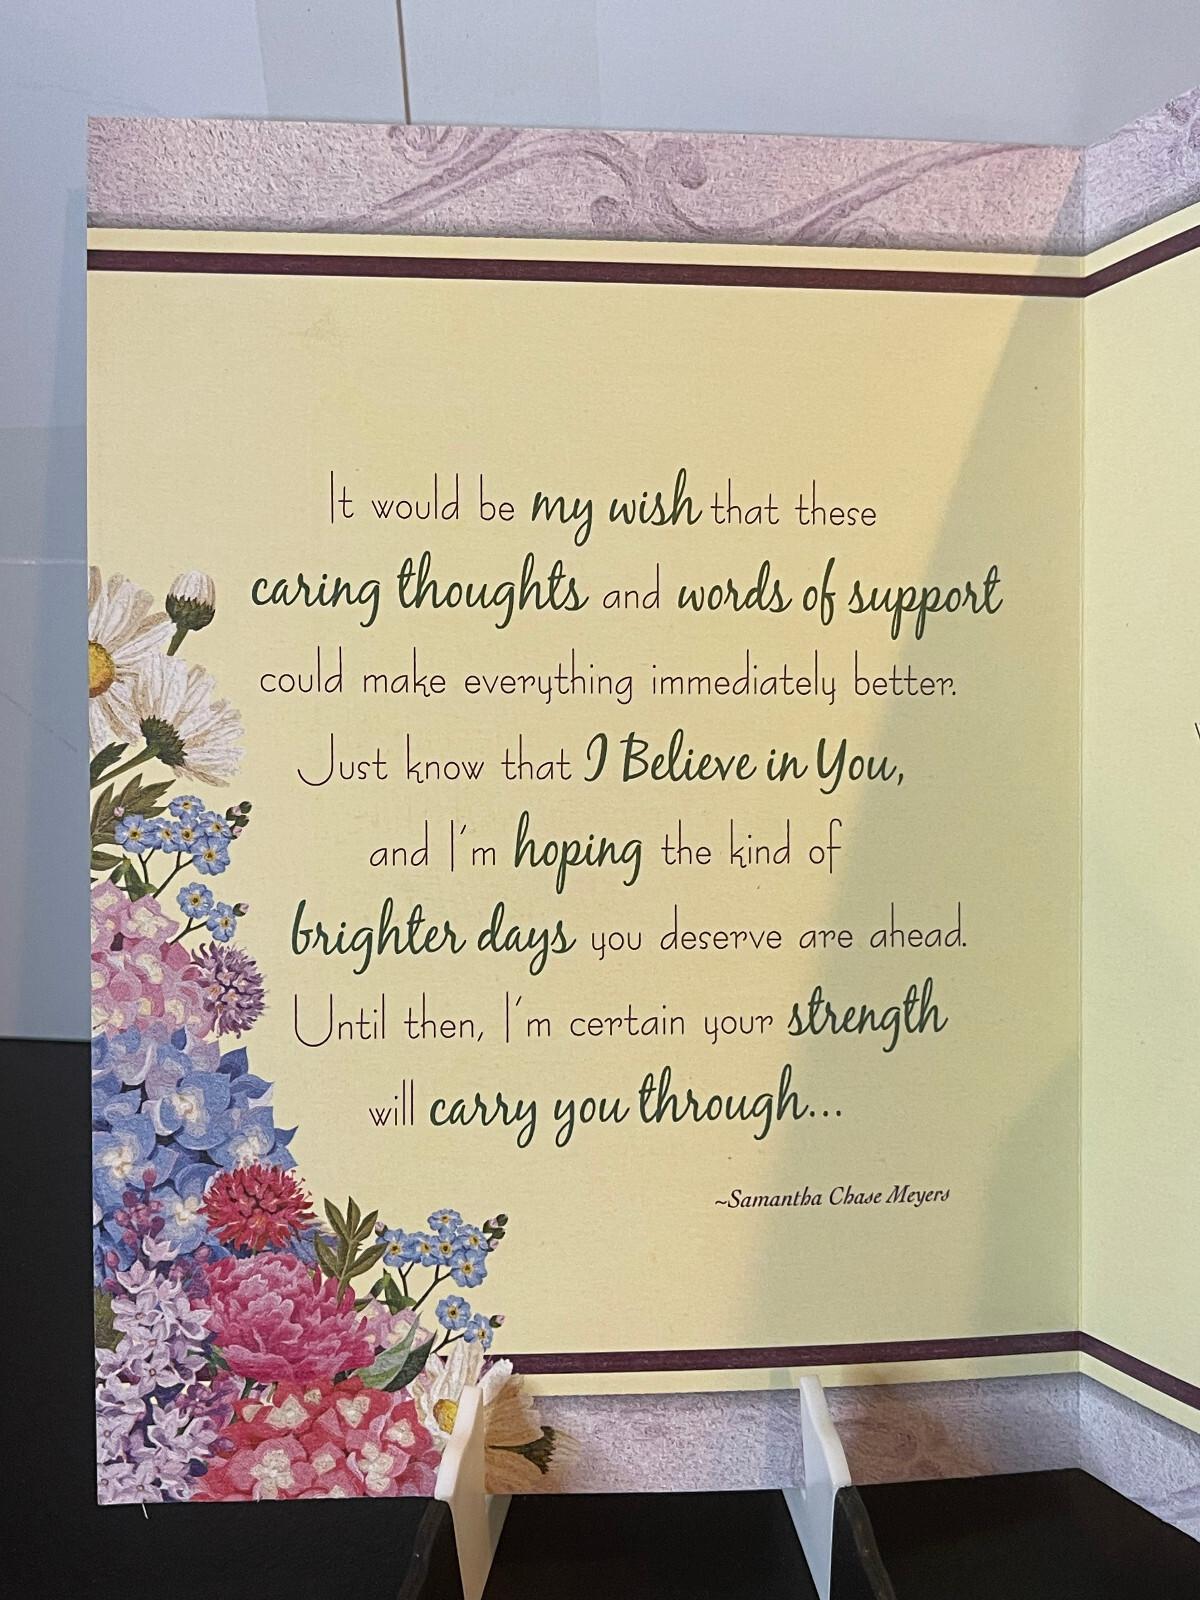 It would be my wish that these
caring thoughts and words of support
could make everything immediately better.
Just know that I Believe in You,
and I'm hoping the kind of
brighter days you deserve are ahead.
Until then, I'm certain your strength
will carry you through...
~Samantha Chase Meyers